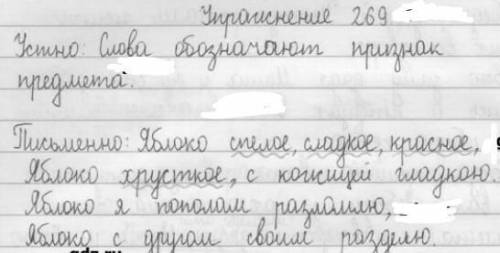 Упражнение 269
Устно: Слова обозначают признак
предмета.
Письменно: Яблоко спелое, сладкое, красное,
Яблоко хрусткое, с кожицей гладкою.
Яблоко я пополам разломлю,
Яблоко с другом своим разделю.